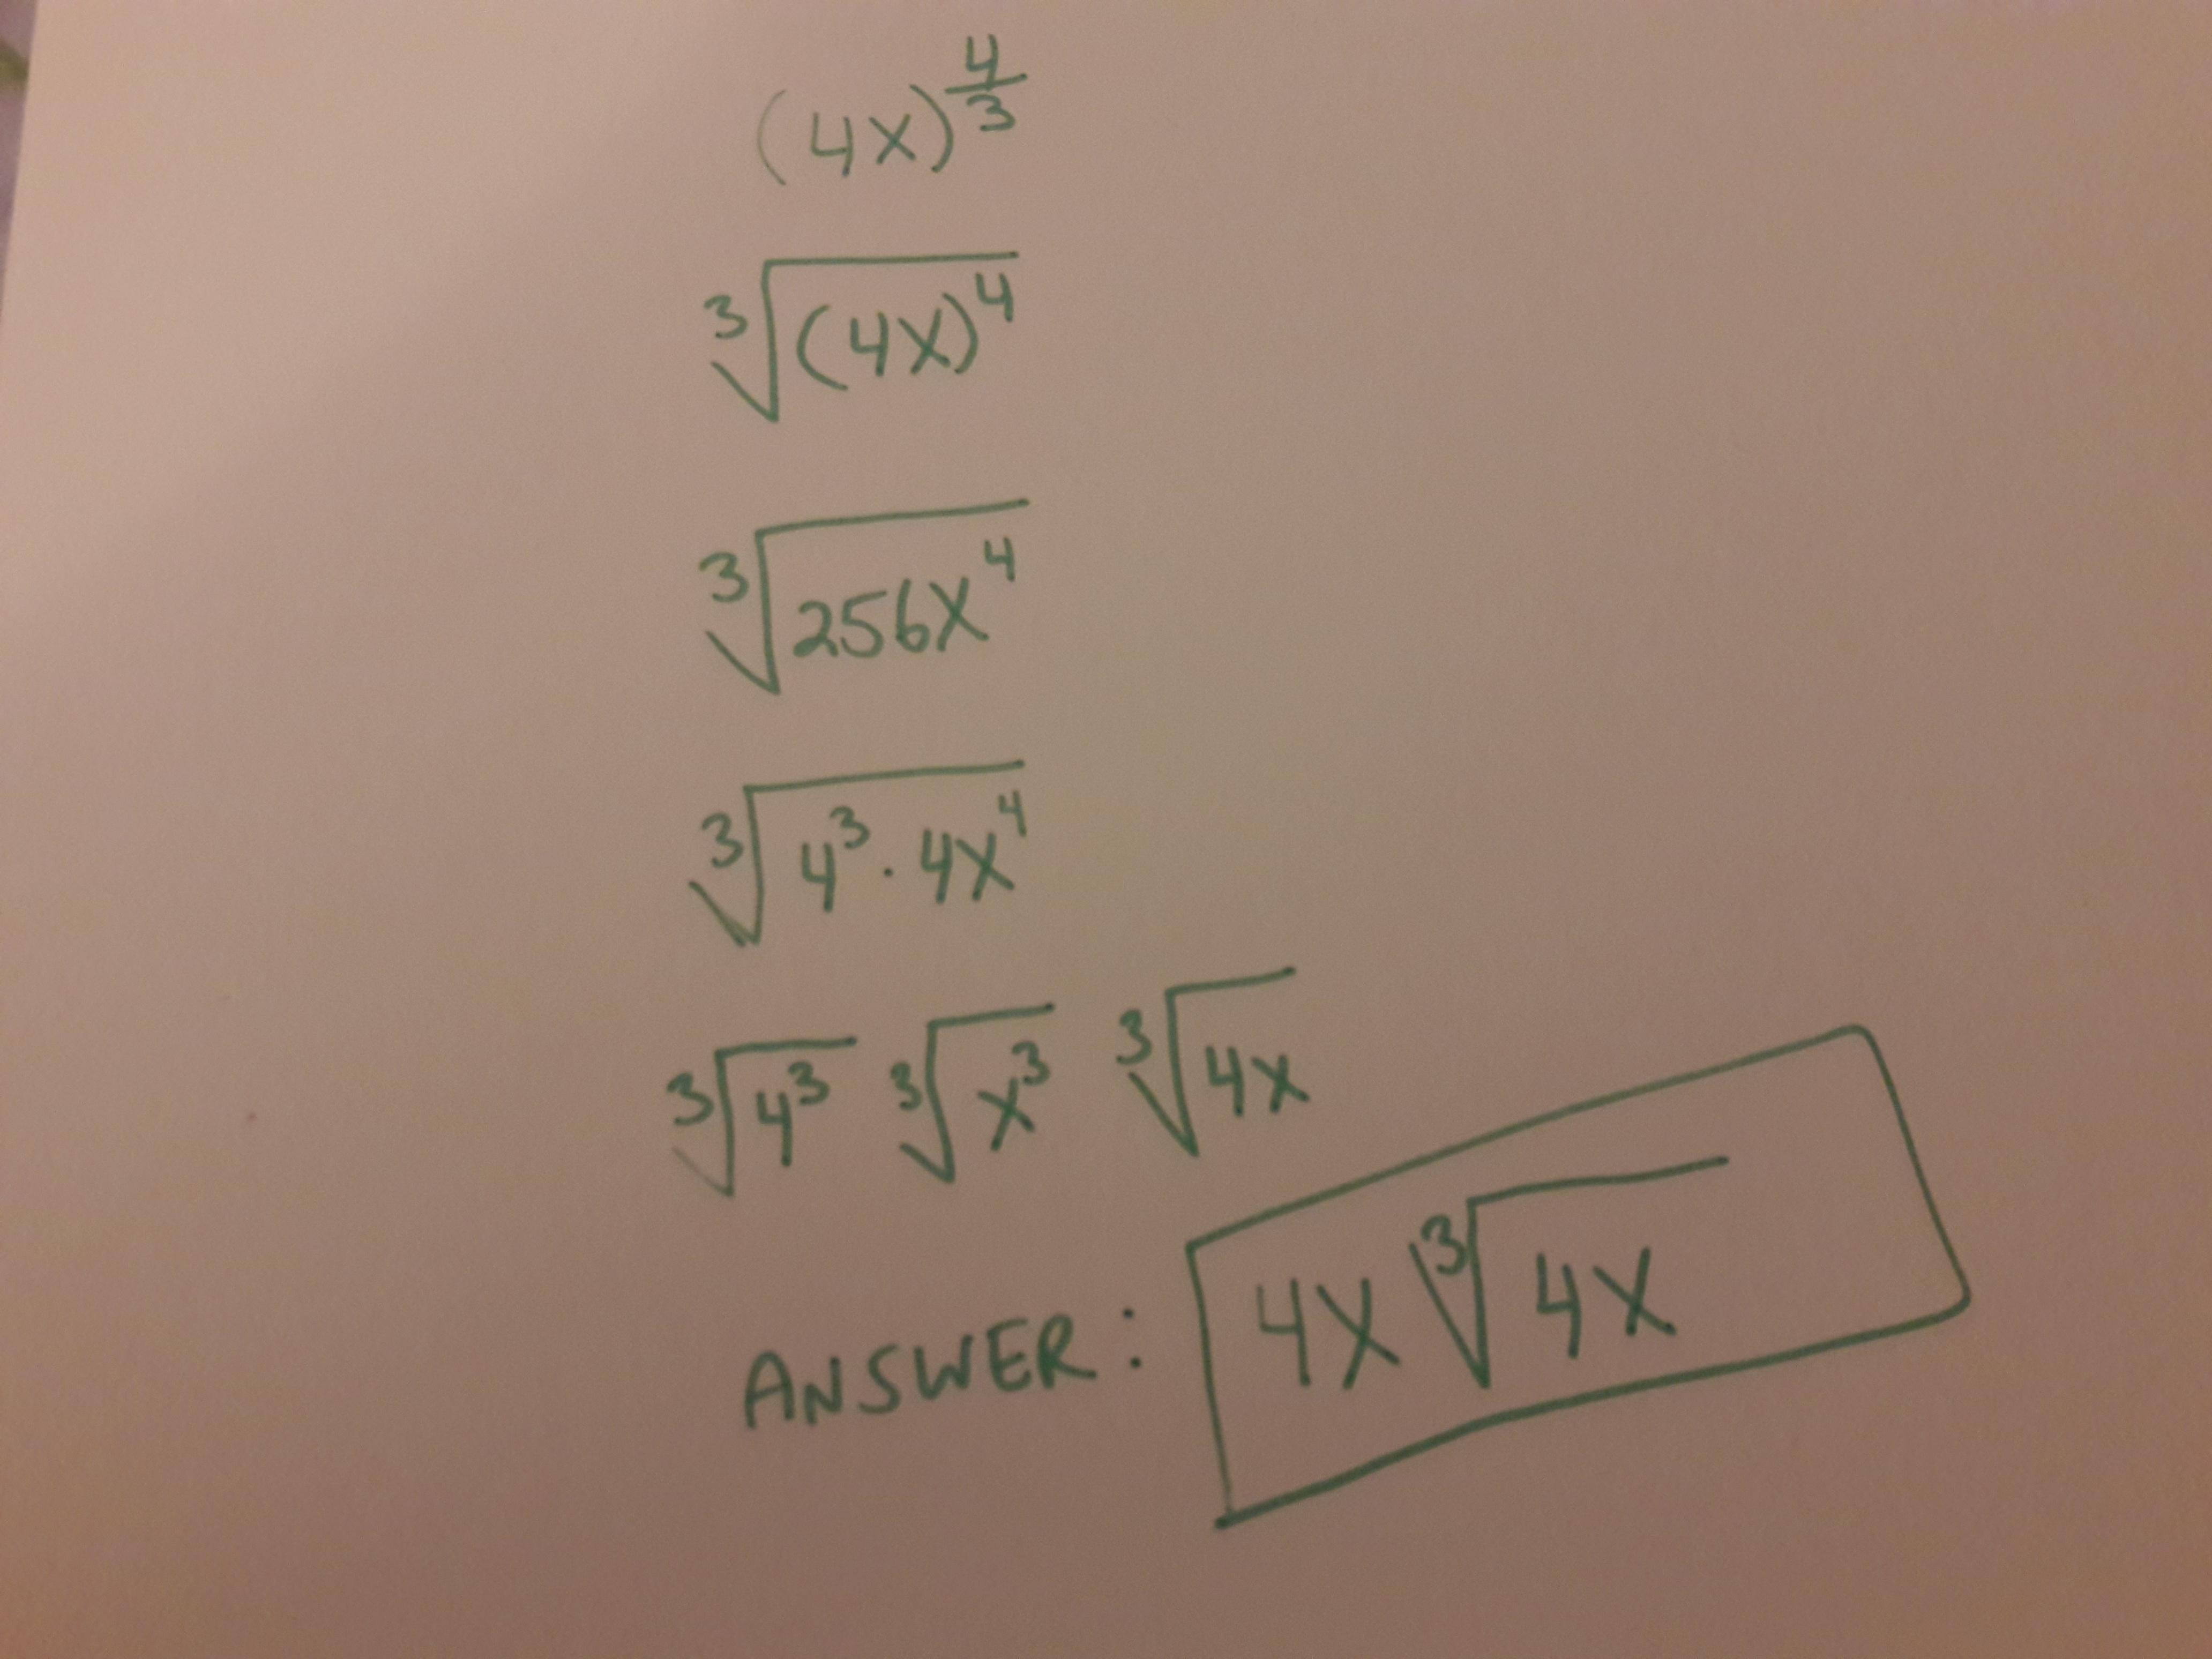 (4x)^(4/3)
∛((4x)⁴)
∛(256x⁴)
∛(4³·4x⁴)
∛(4³) ∛(x³) ∛(4x)
ANSWER: 4x∛(4x)